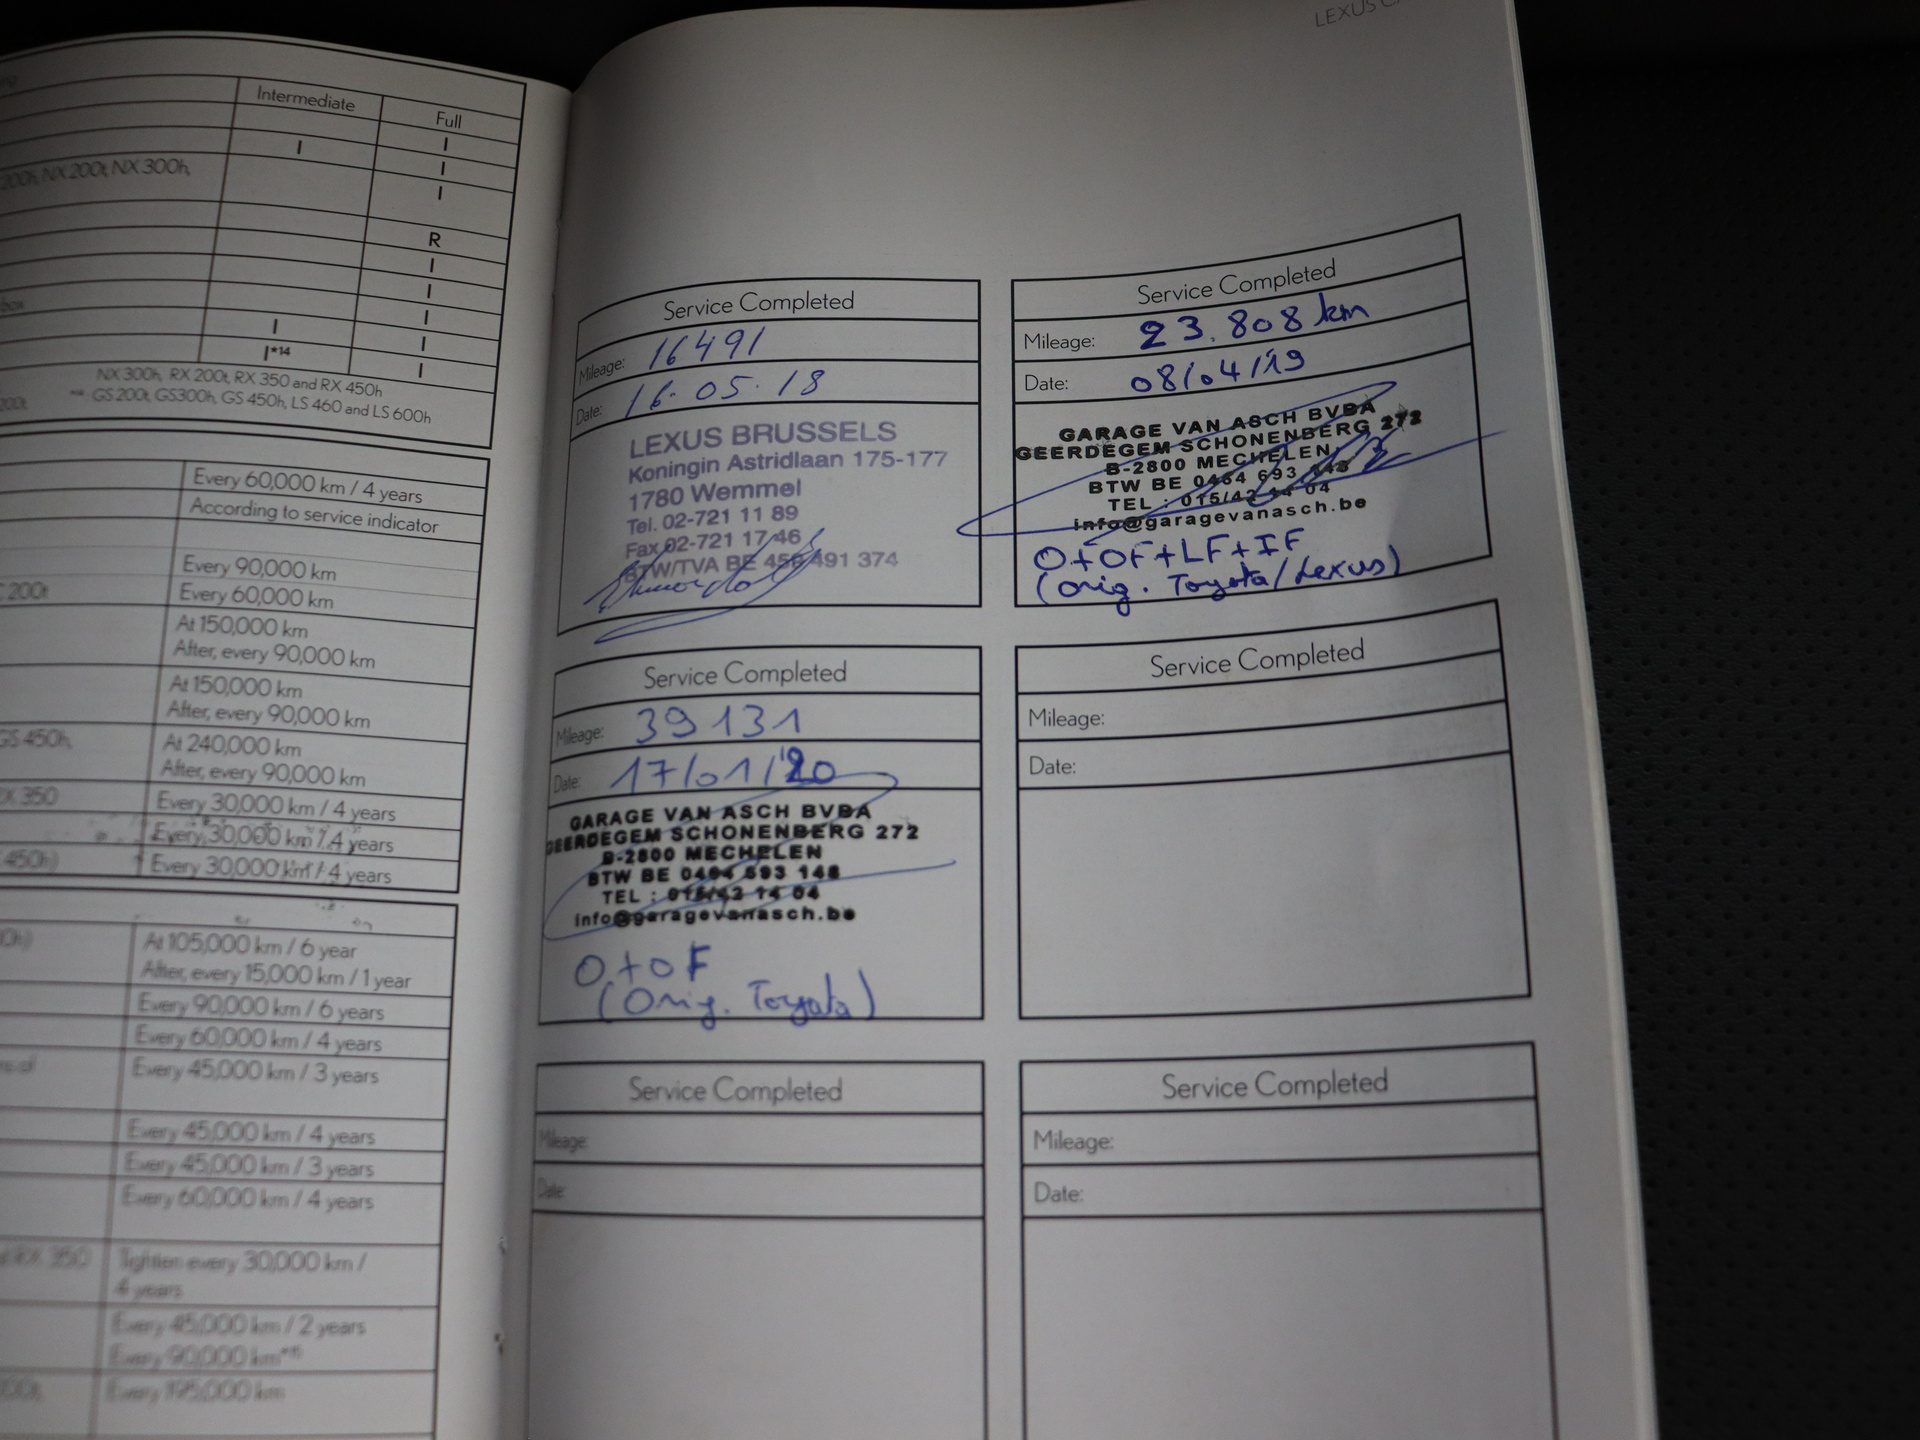 Intermediate
Full
I
I
I
I
200h, NX 200t, NX 300h,
I
R
I
I
box
I
I
I
I*14
I
NX 300h, RX 200t, RX 350 and RX 450h
GS 200t, GS300h, GS 450h, LS 460 and LS 600h
Every 60,000 km / 4 years
According to service indicator
Every 90,000 km
200t
Every 60,000 km
At 150,000 km
After, every 90,000 km
At 150,000 km
After, every 90,000 km
GS 450h,
At 240,000 km
After, every 90,000 km
RX 350
Every 30,000 km / 4 years
Every 30,000 km / 4 years
450h)
Every 30,000 km / 4 years
At 105,000 km / 6 year
After, every 15,000 km / 1 year
Every 90,000 km / 6 years
Every 60,000 km / 4 years
Every 45,000 km / 3 years
Every 45,000 km / 4 years
Every 45,000 km / 3 years
Every 60,000 km / 4 years
RX 350
Tighten every 30,000 km /
4 years
Every 45,000 km / 2 years
Every 90,000 km
Every 195,000 km
LEXUS
Service Completed
Mileage: 16491
Date: 16.05.18
LEXUS BRUSSELS
Koningin Astridlaan 175-177
1780 Wemmel
Tel. 02-721 11 89
Fax 02-721 17 46
BTW/TVA BE 456 491 374
Service Completed
Mileage: 23.808 km
Date: 08/04/'19
GARAGE VAN ASCH BVBA
GEERDEGEM SCHONENBERG 272
B-2800 MECHELEN
BTW BE 0464 693 148
TEL : 015/42 14 04
info@garagevanasch.be
O+OF+LF+IF
(Orig. Toyota/Lexus)
Service Completed
Mileage: 39131
Date: 17/01/'20
GARAGE VAN ASCH BVBA
GEERDEGEM SCHONENBERG 272
B-2800 MECHELEN
BTW BE 0464 693 148
TEL : 015/42 14 04
info@garagevanasch.be
O+OF
(Orig. Toyota)
Service Completed
Mileage:
Date:
Service Completed
Mileage:
Date:
Service Completed
Mileage:
Date: